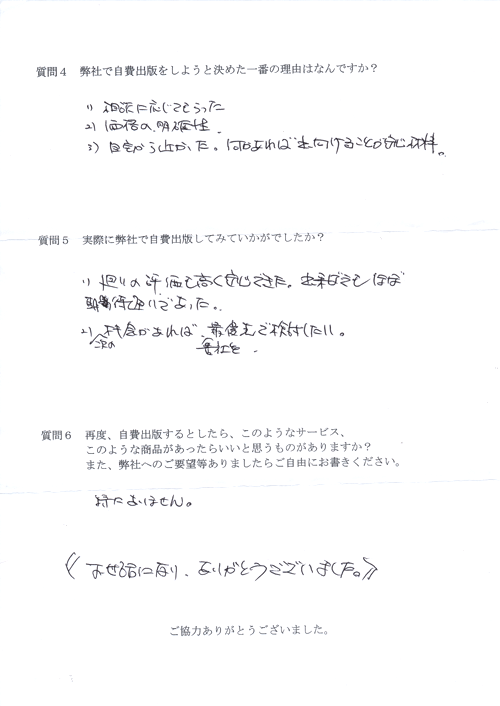 質問4 弊社で自費出版をしようと決めた一番の理由はなんですか?
1) 相談に応じてもらった
2) 価格の明確性.
3) 自宅から近かった。何かあれば出向けることが安心材料。
質問5 実際に弊社で自費出版してみていかがでしたか?
1) 廻りの評価も高く安心できた。出来ばえもほぼ
期待通りであった。
2) 次の機会があれば、貴社を最優先で検討したい。
質問6 再度、自費出版するとしたら、このようなサービス、
このような商品があったらいいと思うものがありますか?
また、弊社へのご要望等ありましたらご自由にお書きください。
特にありません。
《お世話になり、ありがとうございました。》
ご協力ありがとうございました。